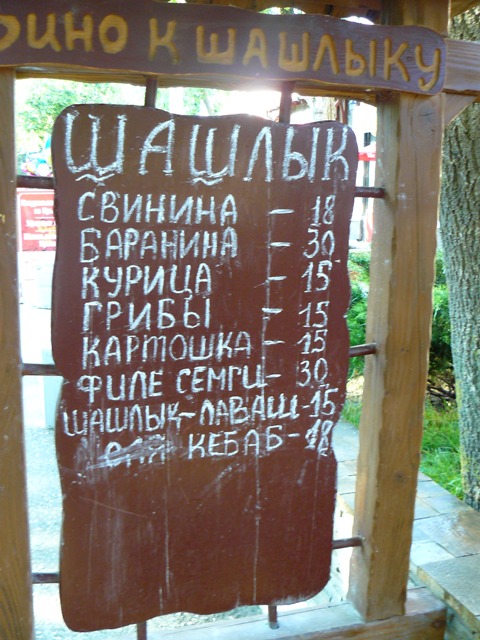 ВИНО К ШАШЛЫКУ
ШАШЛЫК
СВИНИНА - 18
БАРАНИНА - 30
КУРИЦА - 15
ГРИБЫ - 15
КАРТОШКА - 15
ФИЛЕ СЕМГИ - 30
ШАШЛЫК-ЛАВАШ-15
КЕБАБ-18